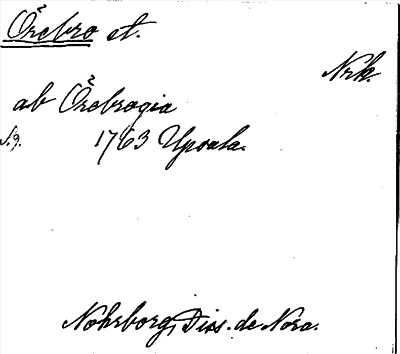 Örebro st.
Nrk.
ab Örebrogia
1763 Upsala.
Nohrborg, Diss. de Nora.